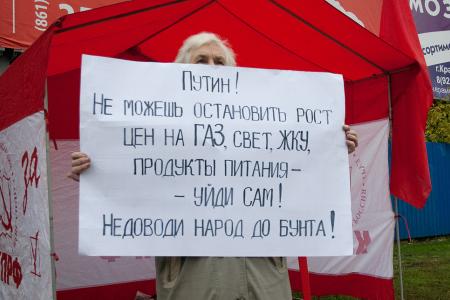 (861)
МОЗ
сортиме
г.Кра
8(92
Путин!
Не можешь остановить рост
цен на ГАЗ, свет, ЖКУ,
продукты питания –
– уйди сам!
Недоводи народ до бунта!
за
ПРФ